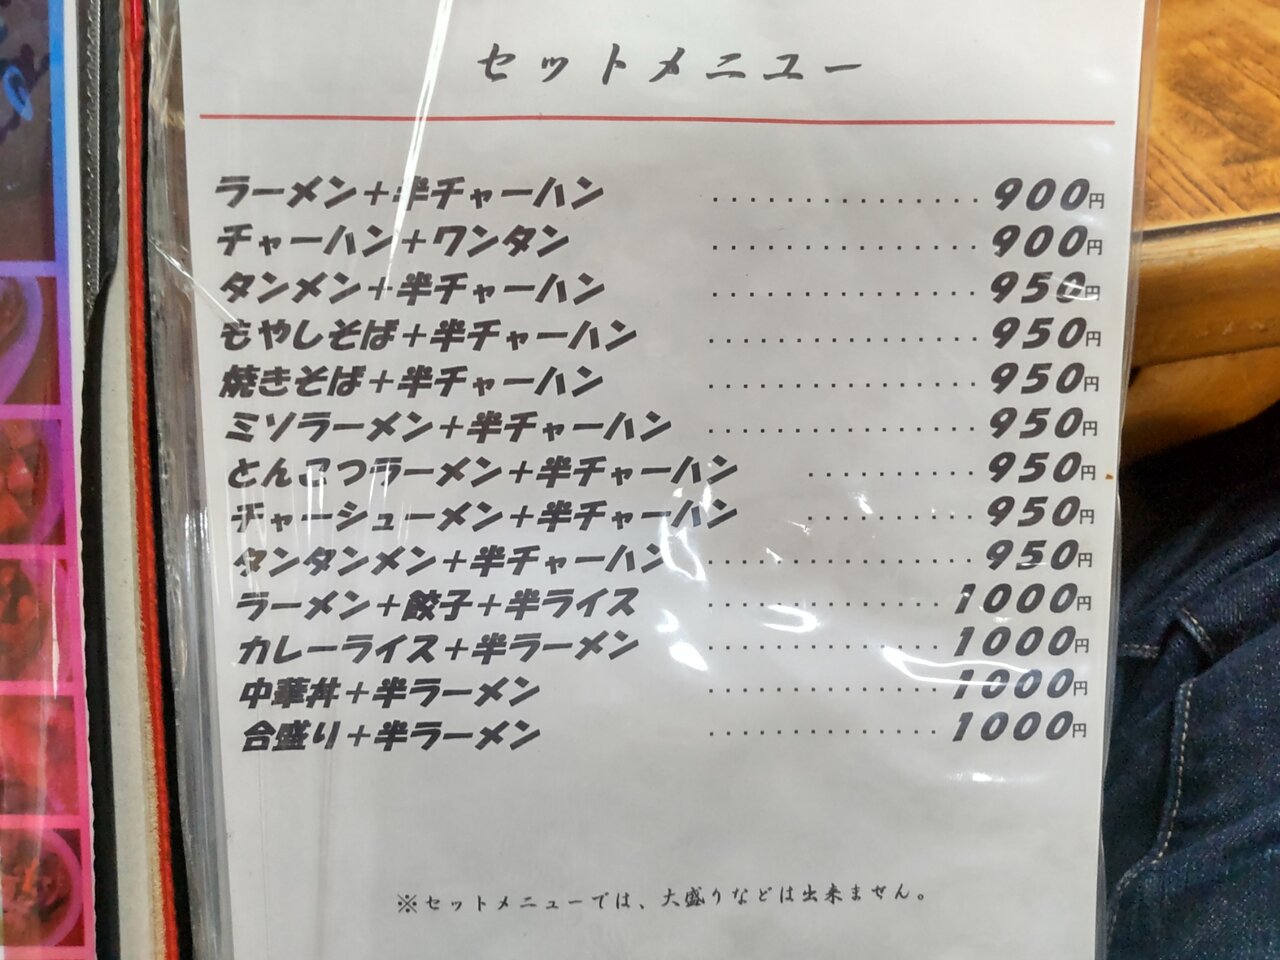 セットメニュー
ラーメン＋半チャーハン ............... 900円
チャーハン＋ワンタン ............... 900円
タンメン＋半チャーハン ............... 950円
もやしそば＋半チャーハン ............... 950円
焼きそば＋半チャーハン ............... 950円
ミソラーメン＋半チャーハン ............... 950円
とんこつラーメン＋半チャーハン .......... 950円
チャーシューメン＋半チャーハン .......... 950円
タンタンメン＋半チャーハン ............... 950円
ラーメン＋餃子＋半ライス ............. 1000円
カレーライス＋半ラーメン ............. 1000円
中華丼＋半ラーメン ............. 1000円
合盛り＋半ラーメン ............. 1000円
※セットメニューでは、大盛りなどは出来ません。